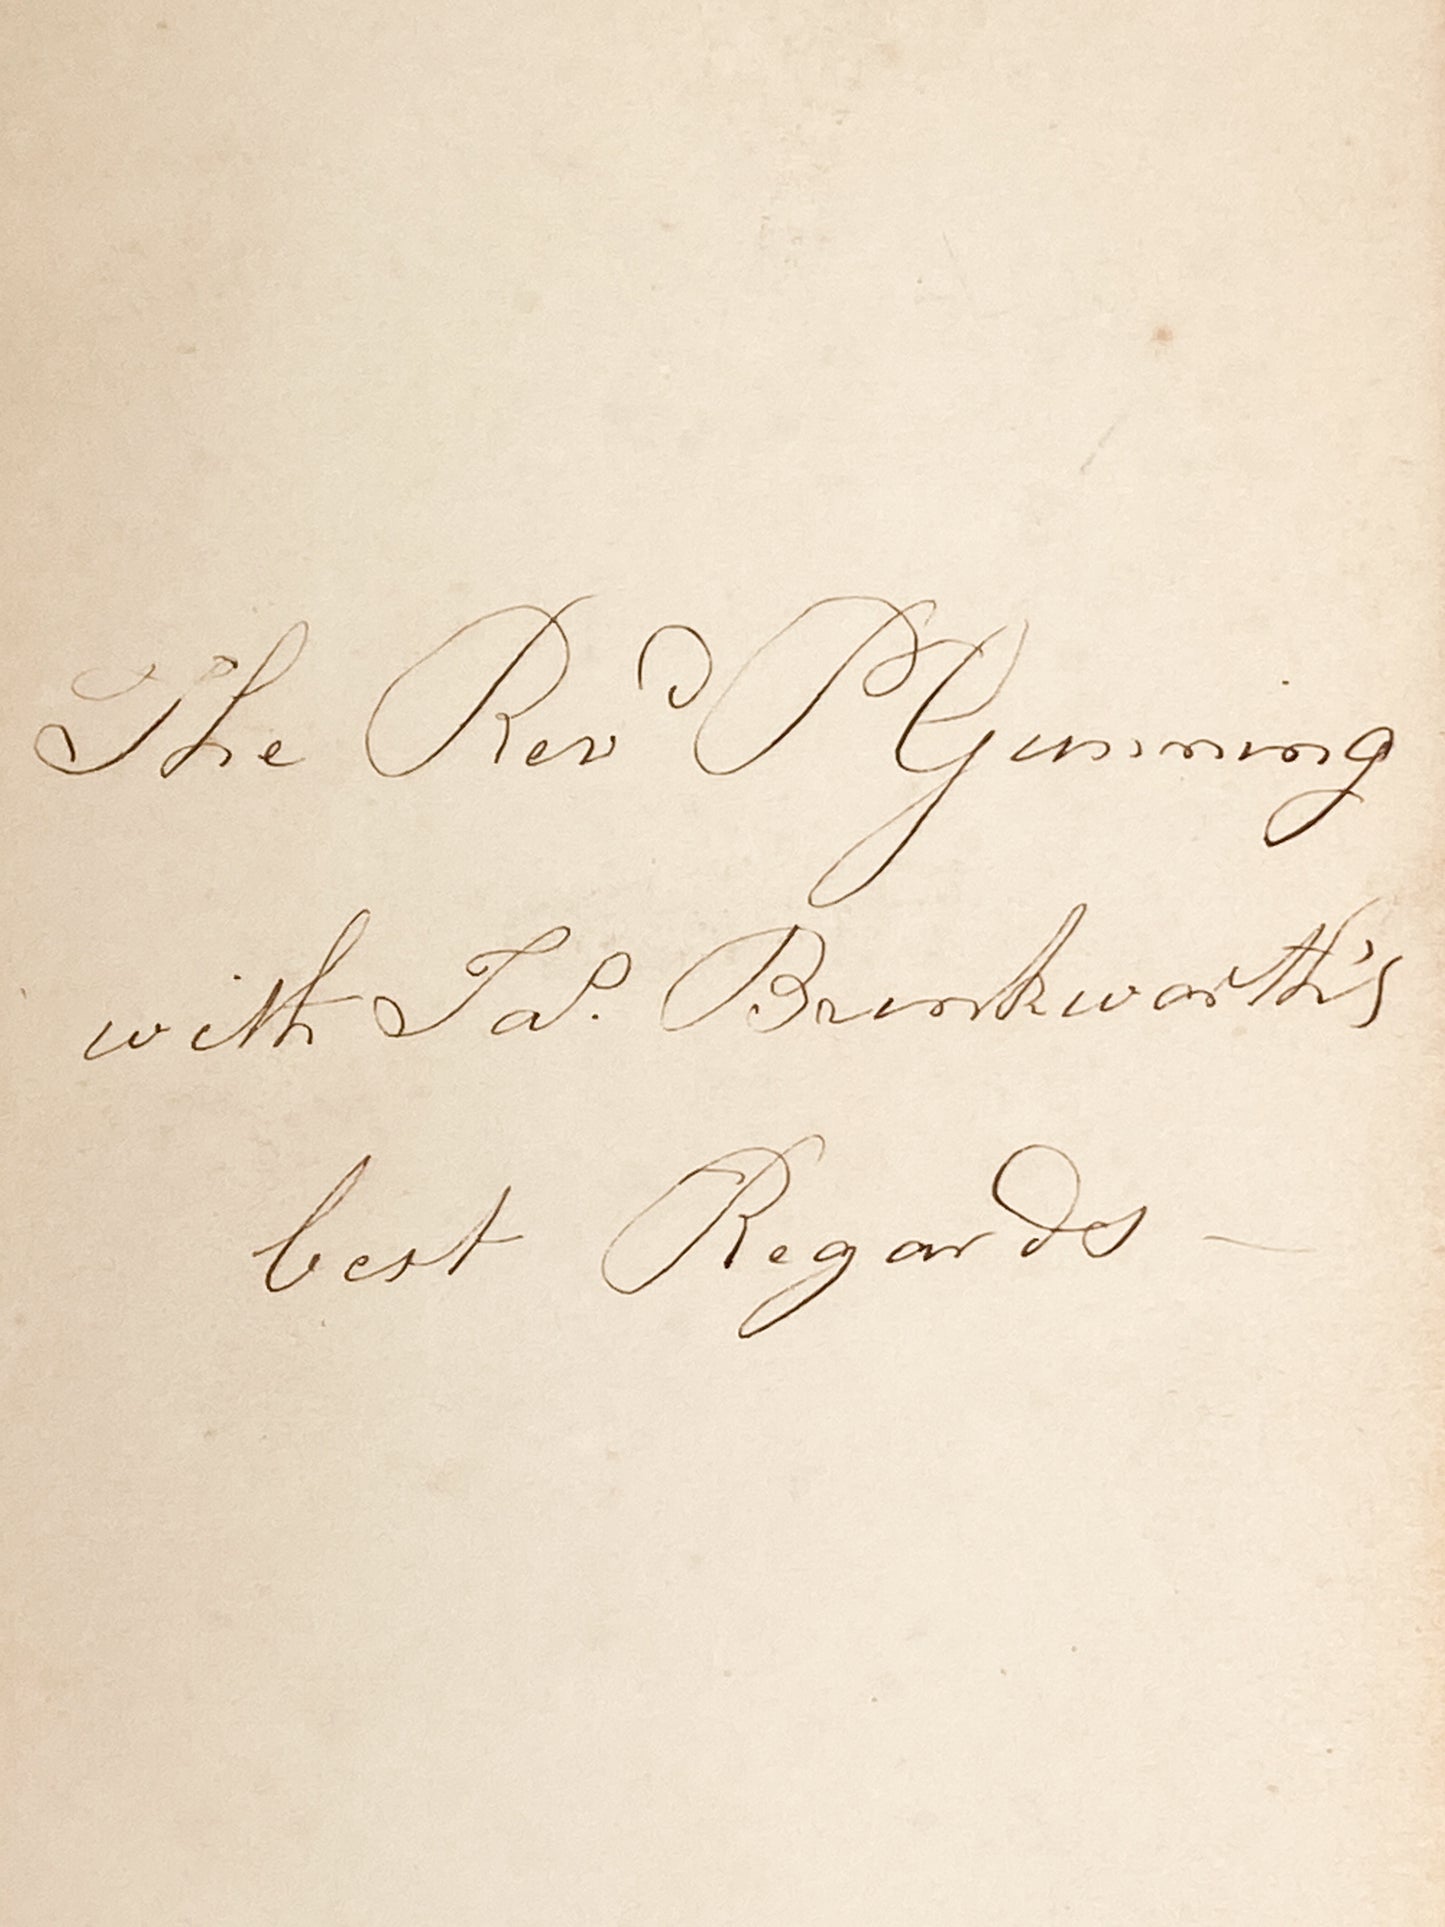 The Revd P Gunning
with Jas. Brinkworth's
best Regards —